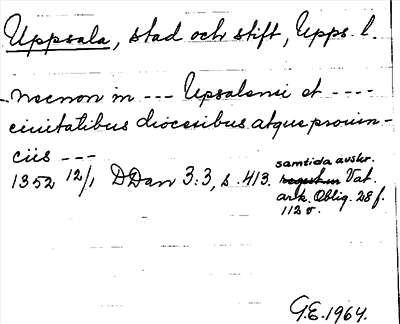 Uppsala, stad och stift, Upps. l.
- necnon in --- Upsalensi et ----
ciuitatibus diocesibus atque prouin-
ciis ---
1352 12/1 DDan 3:3, s. 413. samtida avskr.
Vat.
ark. Oblig. 28 f.
112 v.
G.E. 1964.